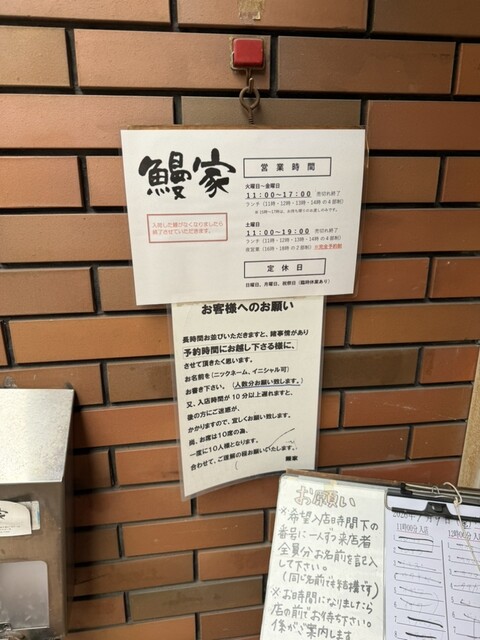 鰻家
営業時間
火曜日～金曜日
11:00～17:00 売切れ終了
ランチ(11時・12時・13時・14時の4部制)
入荷した鰻がなくなりましたら
終了させていただきます。
土曜日
11:00～19:00 売切れ終了
ランチ(11時・12時・13時・14時の4部制)
夜営業(16時・18時の2部制)※完全予約制
定休日
日曜日、月曜日、祝祭日(臨時休業あり)
お客様へのお願い
長時間お並びいただきますと、諸事情があり
予約時間にお越し下さる様に、
させて頂きたく思います。
お名前を(ニックネーム、イニシャル可)
お書き下さい。(人数分お願い致します。)
又、入店時間が10分以上遅れますと、
後の方にご迷惑が、
かかりますので、宜しくお願い致します。
尚、お席は10席の為、
一度に10人様となります。
合わせて、ご理解の程お願いいたします。
鰻家
家
お願い
※希望入店時間下の
番号に一人ずつ来店者
全員分お名前を記入
して下さい。
(同じ名前でも結構です)
※お時間になりましたら
店の前でお待ち下さい。
係がご案内します
11時00分入店